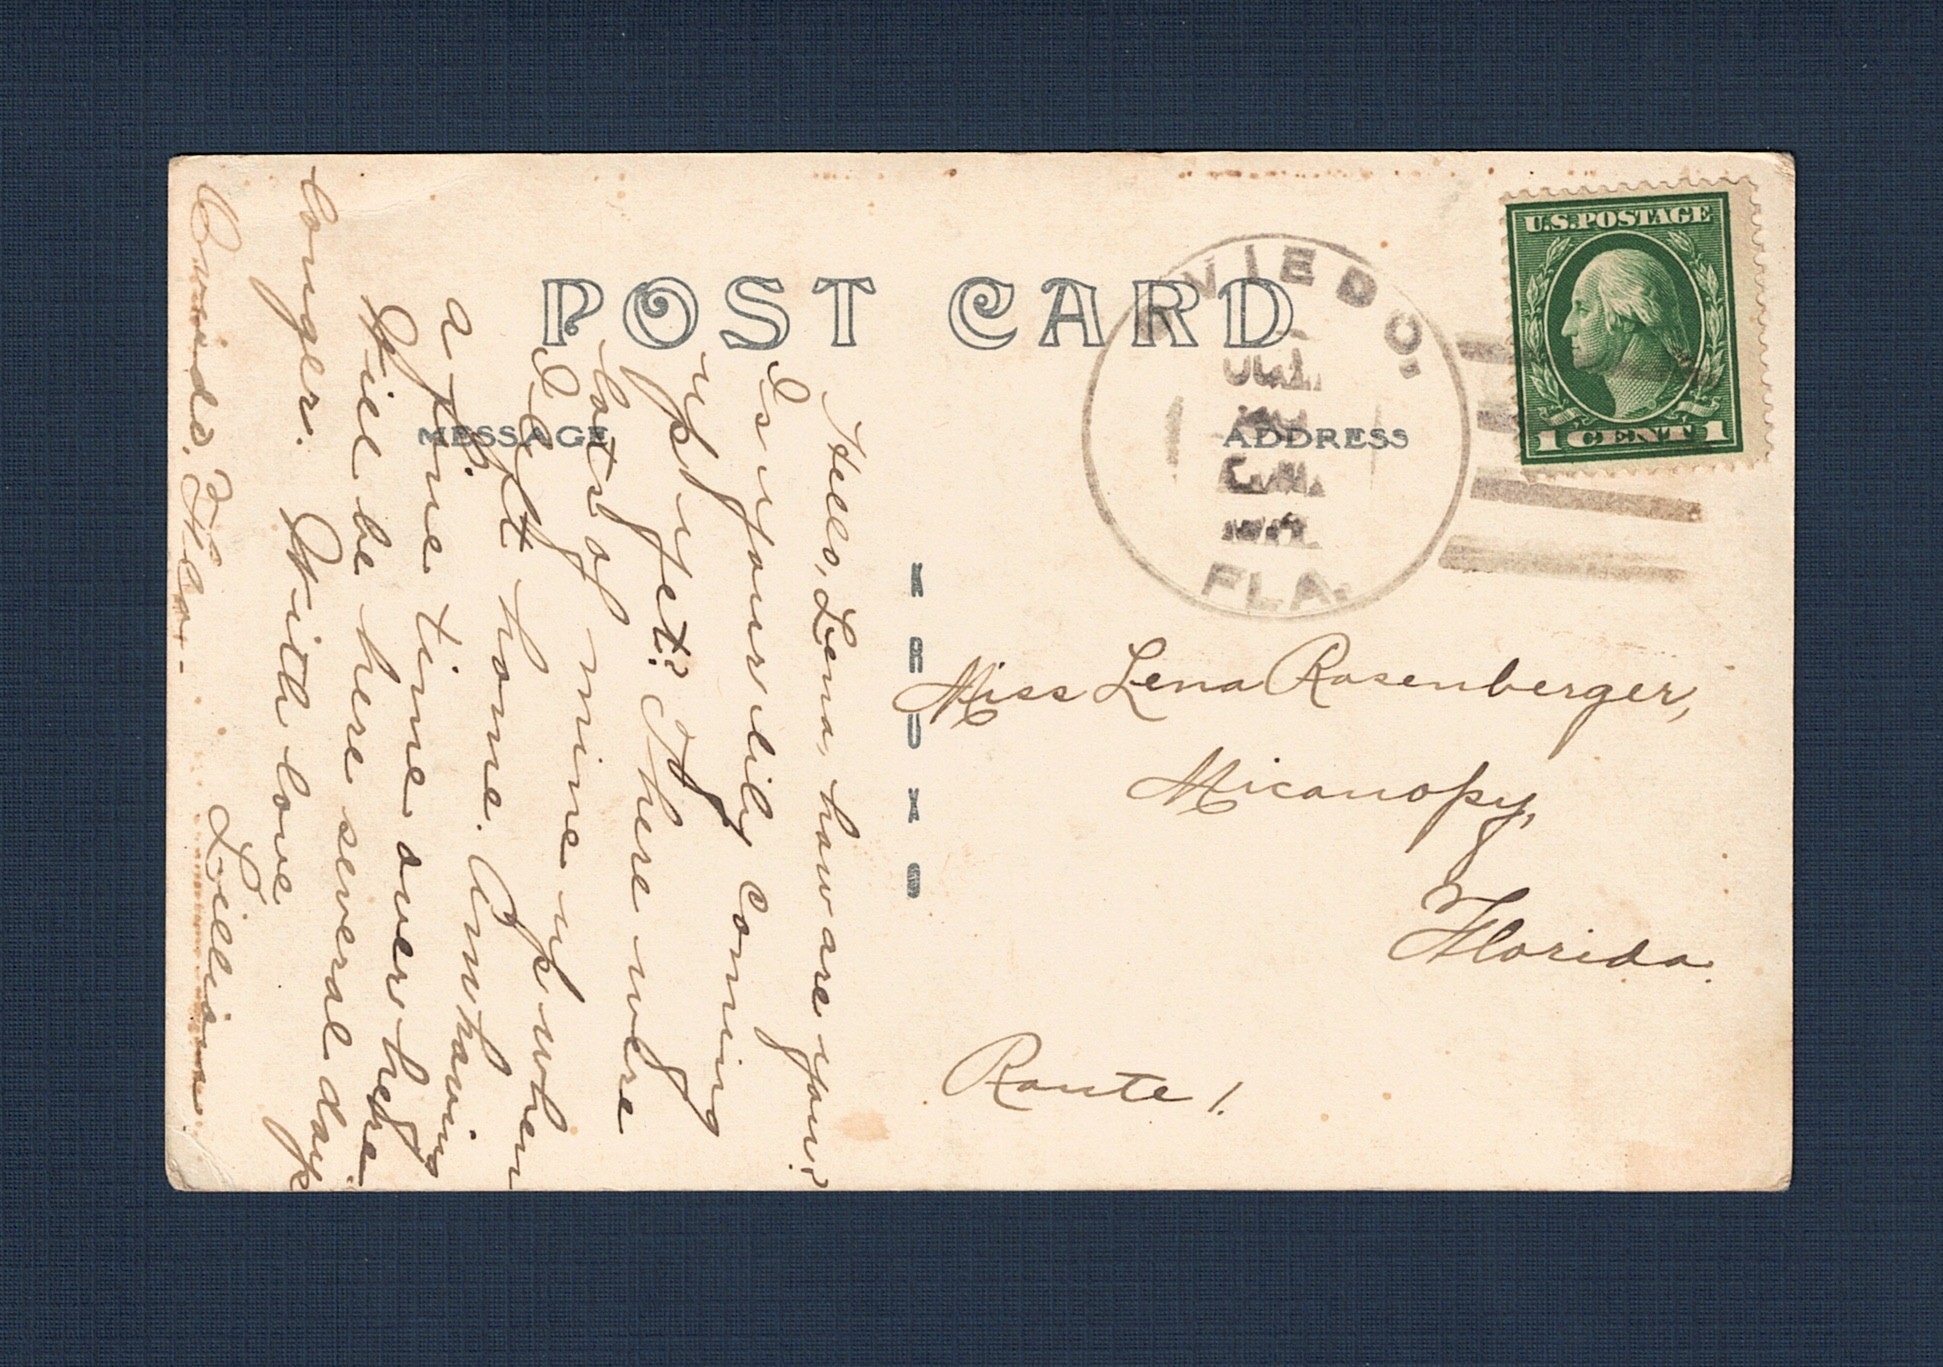 POST CARD
MESSAGE
ADDRESS
OVIEDO.
FLA.
U.S. POSTAGE
1 CENT 1
KRUXO
Miss Lena Rosenberger,
Micanopy,
Florida.
Route 1.
Hello, Lena, how are you?
Is your lily coming
up yet? There were
lots of mine up when
I left home. Am having
a fine time over here
Will be here several days
longer. With love
Lillian.
Oviedo, Fla.